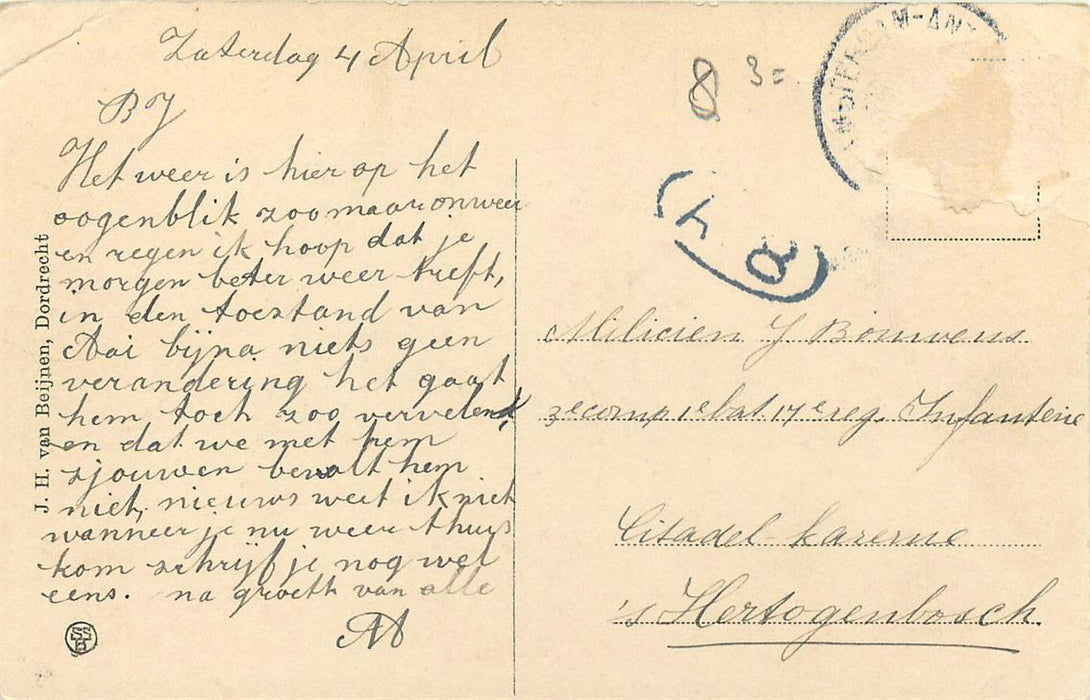 Zaterdag 4 April
B J
Het weer is hier op het
oogenblik zoo maar onweer
en regen ik hoop dat je
morgen beter weer treft,
in den toestand van
Aai bijna niets geen
verandering het gaat
hem toch zoo vervelend,
en dat we met hem
sjouwen bevalt hem
niet, nieuws weet ik niet
wanneer je nu weer thuis
kom schrijf je nog wel
eens. na groeth van alle
J. H. van Beijnen, Dordrecht
8 30
AMSTERDAM-ANT
Milicien J Bouwens
2e comp 1e bat. 17e reg. Infanterie
Citadel-kazerne
's Hertogenbosch.